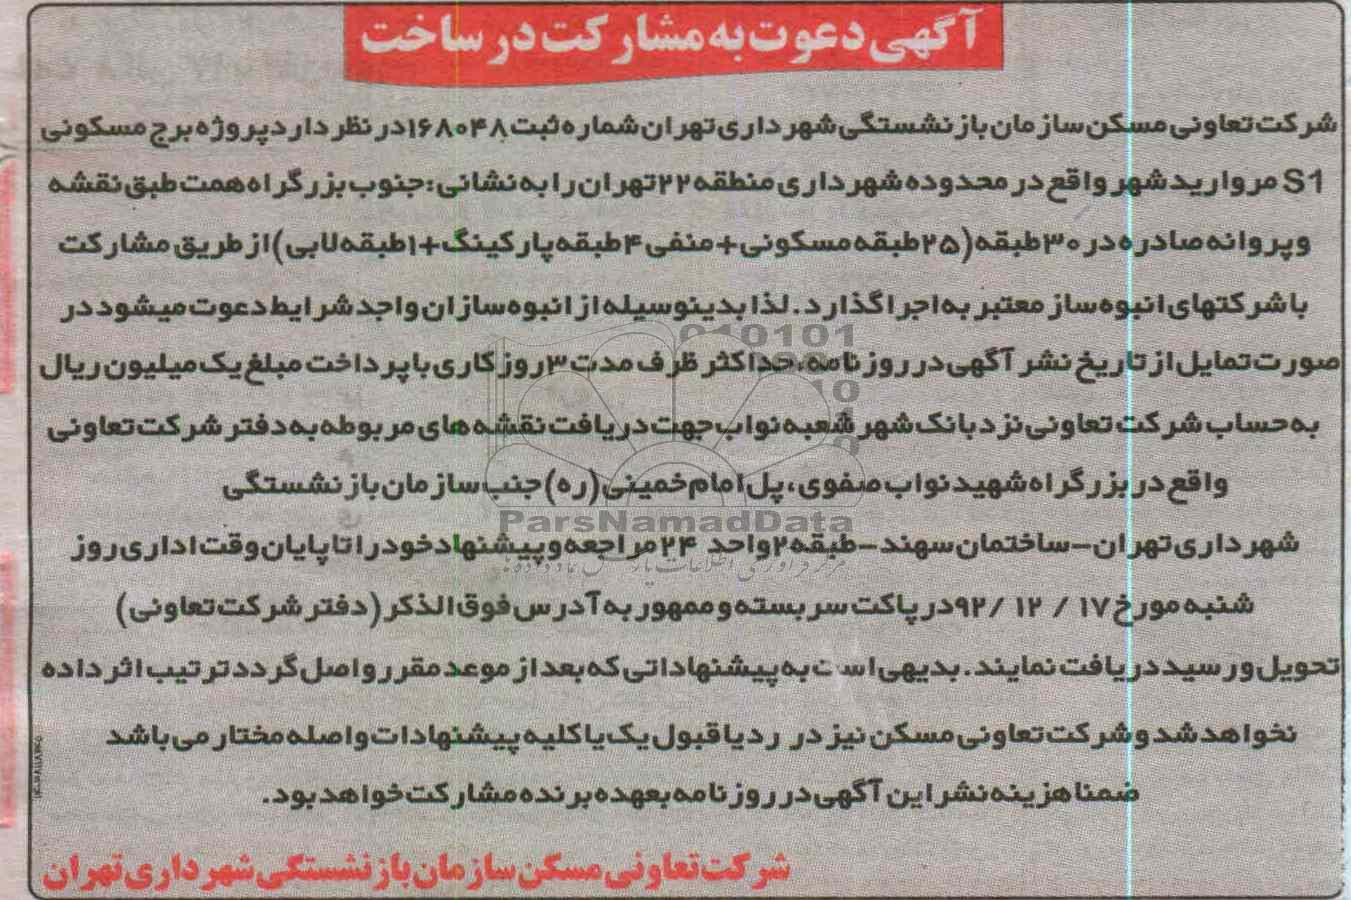 آگهی دعوت به مشارکت در ساخت
شرکت تعاونی مسکن سازمان بازنشستگی شهرداری تهران شماره ثبت ۱۶۸۰۴۸ در نظر دارد پروژه برج مسکونی
S1 مروارید شهر واقع در محدوده شهرداری منطقه ۲۲ تهران را به نشانی: جنوب بزرگراه همت طبق نقشه
و پروانه صادره در ۳۰ طبقه (۲۵ طبقه مسکونی + منفی ۴ طبقه پارکینگ + ۱ طبقه لابی) از طریق مشارکت
با شرکتهای انبوه ساز معتبر به اجرا گذارد. لذا بدینوسیله از انبوه سازان واجد شرایط دعوت میشود در
صورت تمایل از تاریخ نشر آگهی در روزنامه، حداکثر ظرف مدت ۳ روز کاری با پرداخت مبلغ یک میلیون ریال
به حساب شرکت تعاونی نزد بانک شهر شعبه نواب جهت دریافت نقشه های مربوطه به دفتر شرکت تعاونی
واقع در بزرگراه شهید نواب صفوی، پل امام خمینی (ره) جنب سازمان بازنشستگی
شهرداری تهران – ساختمان سهند – طبقه ۲ واحد ۲۴ مراجعه و پیشنهاد خود را تا پایان وقت اداری روز
شنبه مورخ ۱۷ / ۱۲ / ۹۲ در پاکت سربسته و ممهور به آدرس فوق الذکر (دفتر شرکت تعاونی)
تحویل و رسید دریافت نمایند. بدیهی است به پیشنهاداتی که بعد از موعد مقرر واصل گردد ترتیب اثر داده
نخواهد شد و شرکت تعاونی مسکن نیز در رد یا قبول یک یا کلیه پیشنهادات واصله مختار می باشد
ضمنا هزینه نشر این آگهی در روزنامه بعهده برنده مشارکت خواهد بود.
شرکت تعاونی مسکن سازمان بازنشستگی شهرداری تهران
ParsNamadData